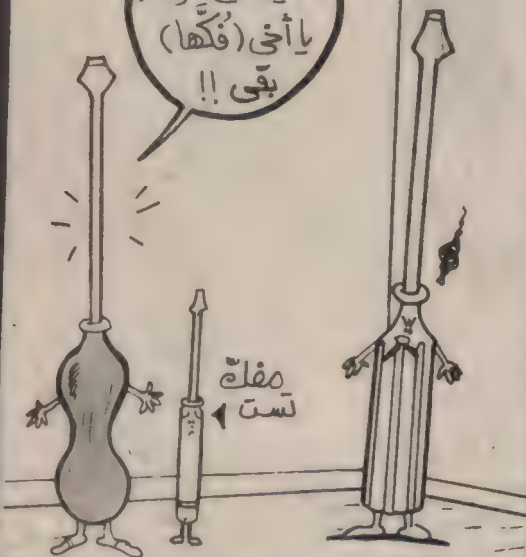 يا أخي (فُكَّها)
بقى !!
مفكّ
تست